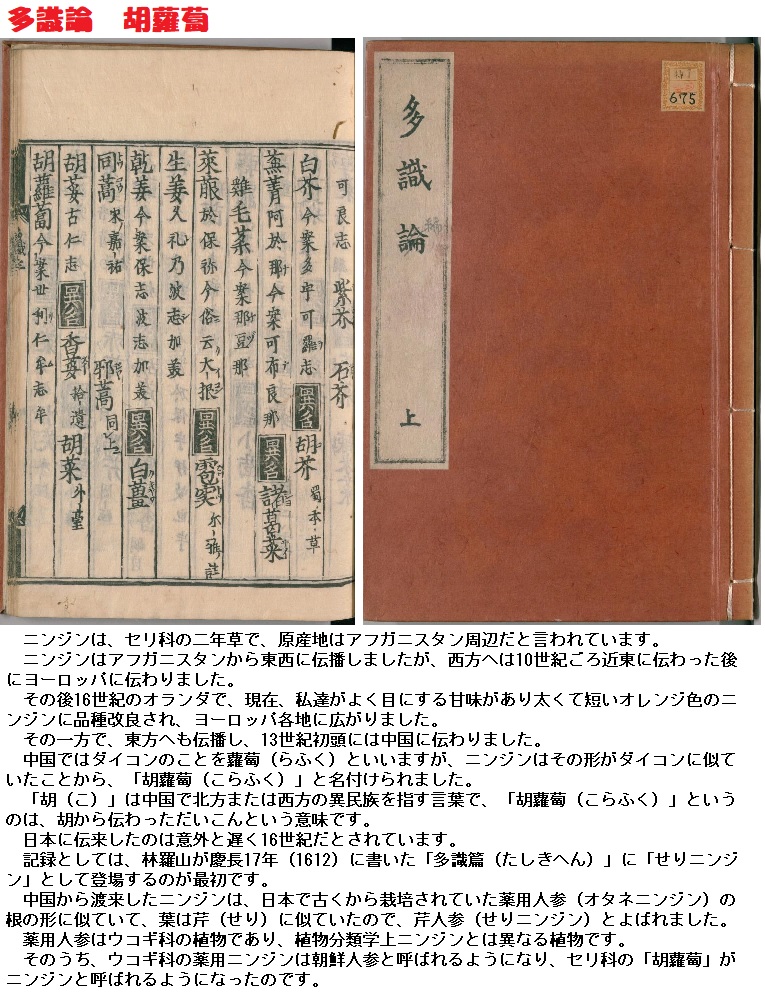 多識論　胡蘿蔔
可良志 紫芥 石芥
白芥 今案多乎可羅志 異名 胡芥 蜀本草
蕪菁 阿於那今案可布良那 異名 諸葛菜
雞毛菜 今案那豆那
萊菔 於保祢今俗云大根 異名 雹葖 尓雅註
生姜 久礼乃波志加美
乾姜 今案保志波志加美 異名 白薑
同蒿 宋嘉祐 邪蒿 同上
胡荽 古仁志 異名 香荽 拾遺 胡菜 外臺
胡蘿蔔 今案世利仁牟志牟
多識論
上
675
ニンジンは、セリ科の二年草で、原産地はアフガニスタン周辺だと言われています。
ニンジンはアフガニスタンから東西に伝播しましたが、西方へは10世紀ごろ近東に伝わった後
にヨーロッパに伝わりました。
その後16世紀のオランダで、現在、私達がよく目にする甘味があり太くて短いオレンジ色のニ
ンジンに品種改良され、ヨーロッパ各地に広がりました。
その一方で、東方へも伝播し、13世紀初頭には中国に伝わりました。
中国ではダイコンのことを蘿蔔（らふく）といいますが、ニンジンはその形がダイコンに似て
いたことから、「胡蘿蔔（こらふく）」と名付けられました。
「胡（こ）」は中国で北方または西方の異民族を指す言葉で、「胡蘿蔔（こらふく）」という
のは、胡から伝わっただいこんという意味です。
日本に伝来したのは意外と遅く16世紀だとされています。
記録としては、林羅山が慶長17年（1612）に書いた「多識篇（たしきへん）」に「せりニンジ
ン」として登場するのが最初です。
中国から渡来したニンジンは、日本で古くから栽培されていた薬用人参（オタネニンジン）の
根の形に似ていて、葉は芹（せり）に似ていたので、芹人参（せりニンジン）とよばれました。
薬用人参はウコギ科の植物であり、植物分類学上ニンジンとは異なる植物です。
そのうち、ウコギ科の薬用ニンジンは朝鮮人参と呼ばれるようになり、セリ科の「胡蘿蔔」が
ニンジンと呼ばれるようになったのです。